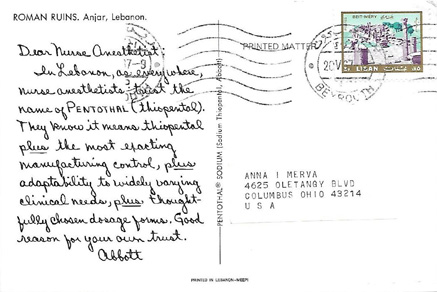 ROMAN RUINS. Anjar, Lebanon.
Dear Nurse Anesthetist:
In Lebanon, as everywhere,
nurse anesthetists trust the
name of PENTOTHAL (thiopental).
They know it means thiopental
plus the most exacting
manufacturing control, plus
adaptability to widely varying
clinical needs, plus thought-
fully chosen dosage forms. Good
reason for your own trust.
Abbott
PENTOTHAL® SODIUM (Sodium Thiopental, Abbott)
PRINTED MATTER
BEIT-MERY
LIBAN
BEYROUTH
ANNA I MERVA
4625 OLETANGY BLVD
COLUMBUS OHIO 43214
U S A
PRINTED IN LEBANON